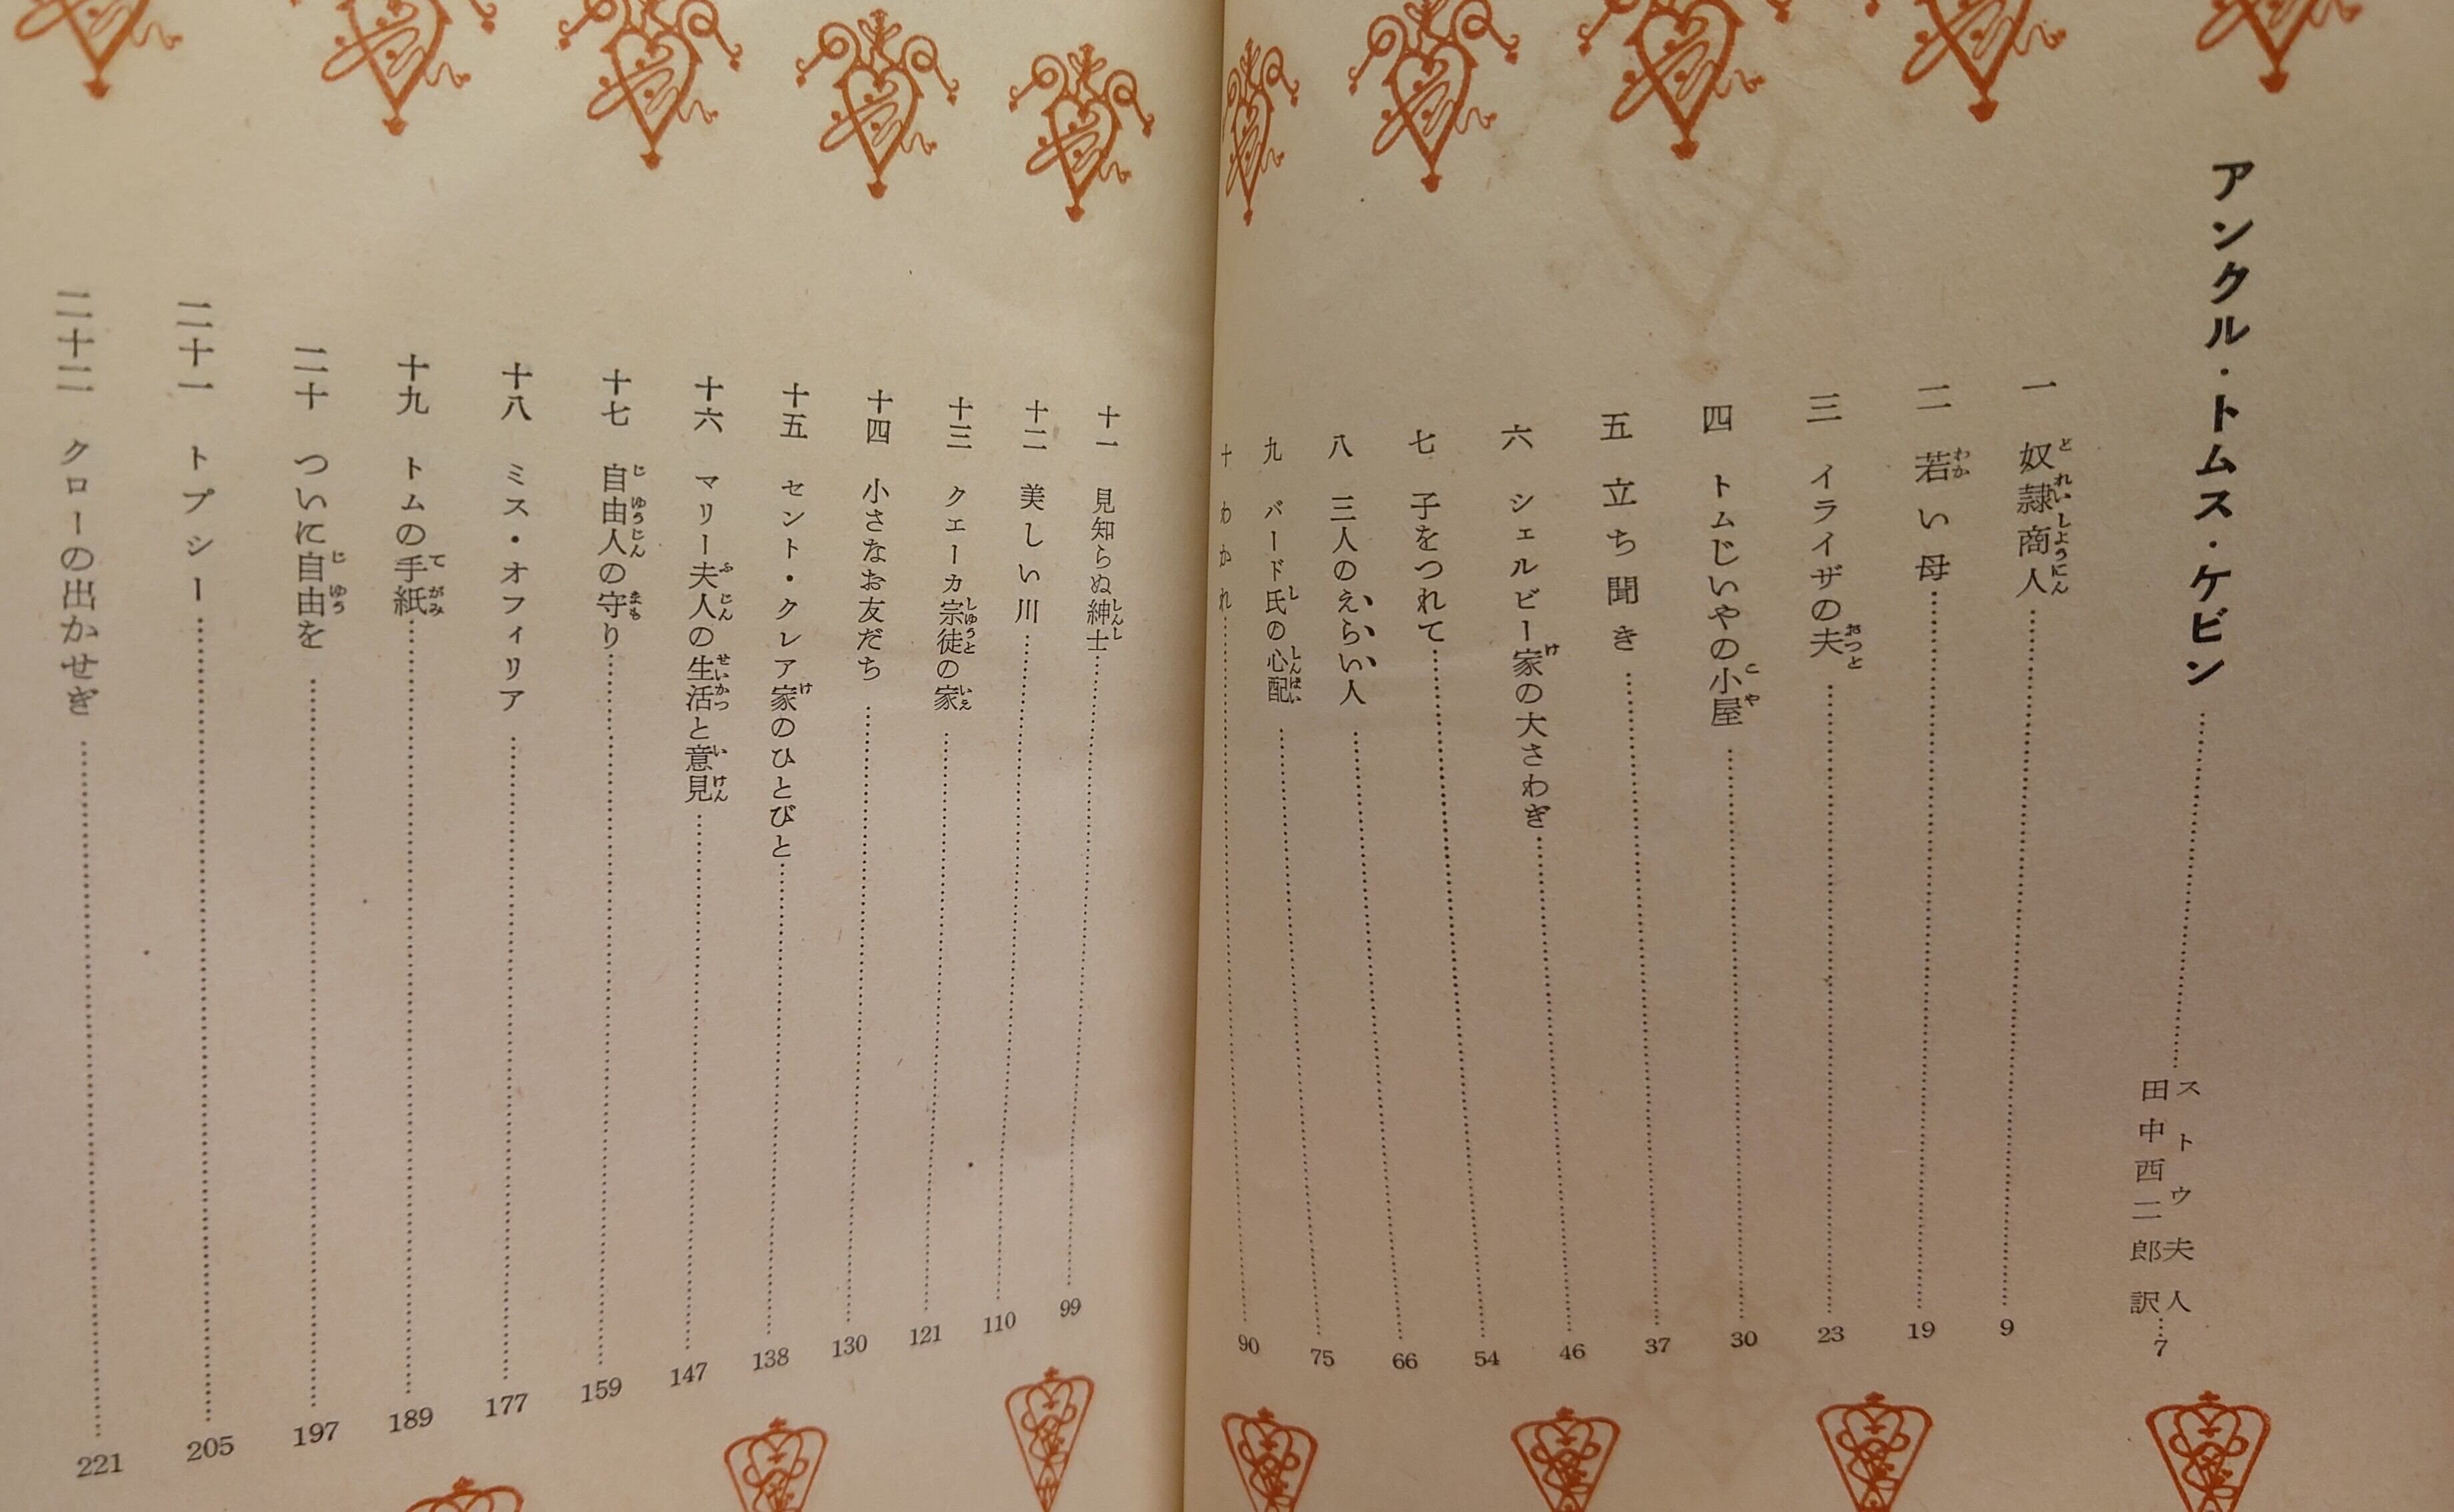 アンクル・トムス・ケビン……ストウ夫人 田中西二郎 訳……7
一 奴隷商人……9
二 若い母……19
三 イライザの夫……23
四 トムじいやの小屋……30
五 立ち聞き……37
六 シェルビー家の大さわぎ……46
七 子をつれて……54
八 三人のえらい人……66
九 バード氏の心配……75
十 わかれ……90
十一 見知らぬ紳士……99
十二 美しい川……110
十三 クエーカ宗徒の家……121
十四 小さなお友だち……130
十五 セント・クレア家のひとびと……138
十六 マリー夫人の生活と意見……147
十七 自由人の守り……159
十八 ミス・オフィリア……177
十九 トムの手紙……189
二十 ついに自由を……197
二十一 トプシー……205
二十二 クローの出かせぎ……221